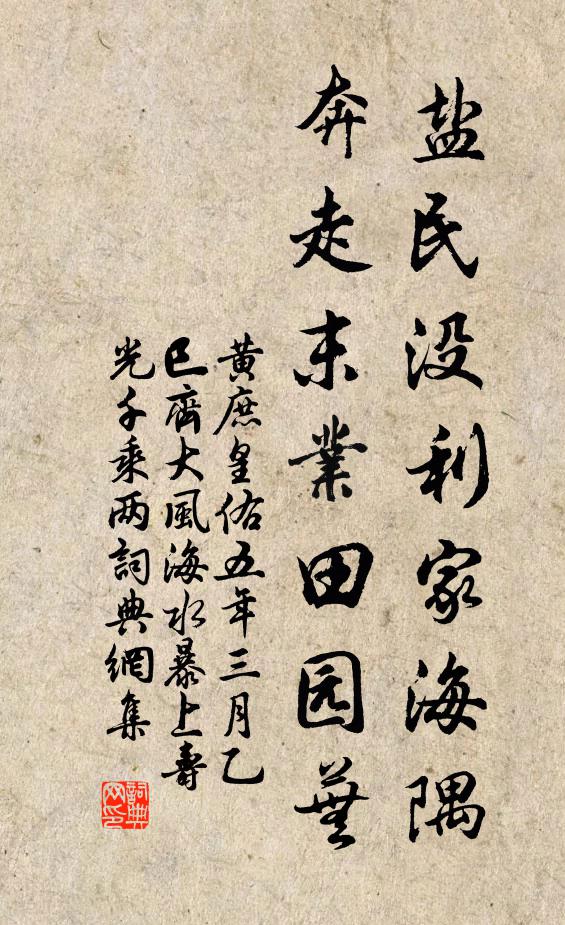 盐民没利家海隅
奔走末業田园蕪
黄庶皇佑五年三月乙
巳齊大風海水暴上壽
光千乘两詞典網集
詞典
网印